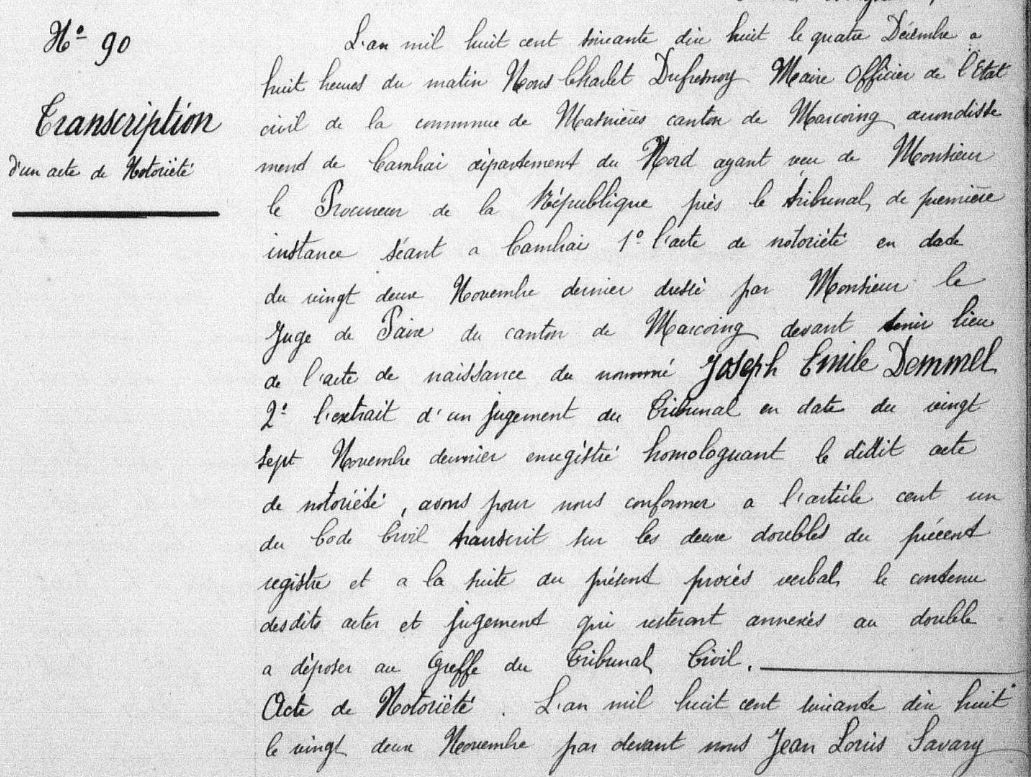 N° 90
Transcription
d'un acte de Notoriété
L'an mil huit cent soixante dix huit le quatre Décembre a
huit heures du matin Nous Charlet Dufresnoy Maire Officier de l'Etat
civil de la commune de Masnières canton de Marcoing arrondisse
ment de Cambrai département du Nord ayant vu de Monsieur
le Procureur de la République près le tribunal de première
instance séant a Cambrai 1° l'acte de notoriété en date
du vingt deux Novembre dernier dressé par Monsieur le
Juge de Paix du canton de Marcoing devant tenir lieu
de l'acte de naissance du nommé Joseph Emile Demmel
2° l'extrait d'un jugement du Tribunal en date du vingt
sept Novembre dernier enregistré homologuant le dittit acte
de notoriété, avons pour nous conformer a l'article cent un
du Code Civil transcrit sur les deux doubles du précent
registre et a la suite du présent procès verbal, le contenu
desdits actes et jugement qui resteront annexés au double
a déposer au Greffe du Tribunal Civil.
Acte de Notoriété. L'an mil huit cent soixante dix huit
le vingt deux Novembre par devant nous Jean Louis Savary